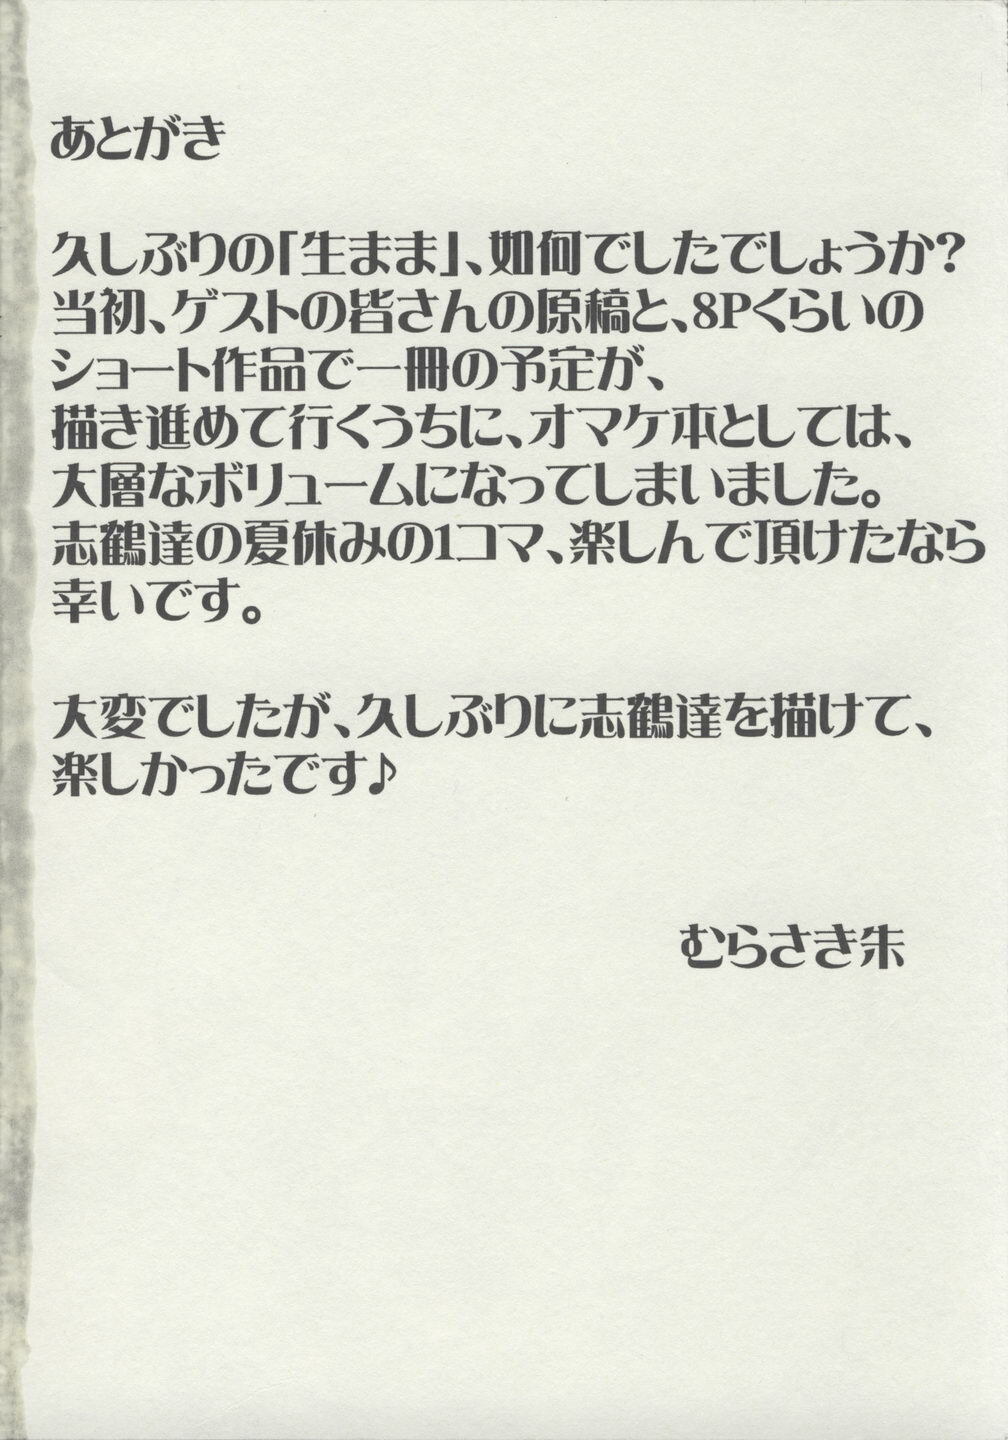 あとがき
久しぶりの「生まま」、如何でしたでしょうか？
当初、ゲストの皆さんの原稿と、8Pくらいの
ショート作品で一冊の予定が、
描き進めて行くうちに、オマケ本としては、
大層なボリュームになってしまいました。
志鶴達の夏休みの1コマ、楽しんで頂けたなら
幸いです。
大変でしたが、久しぶりに志鶴達を描けて、
楽しかったです♪
むらさき朱